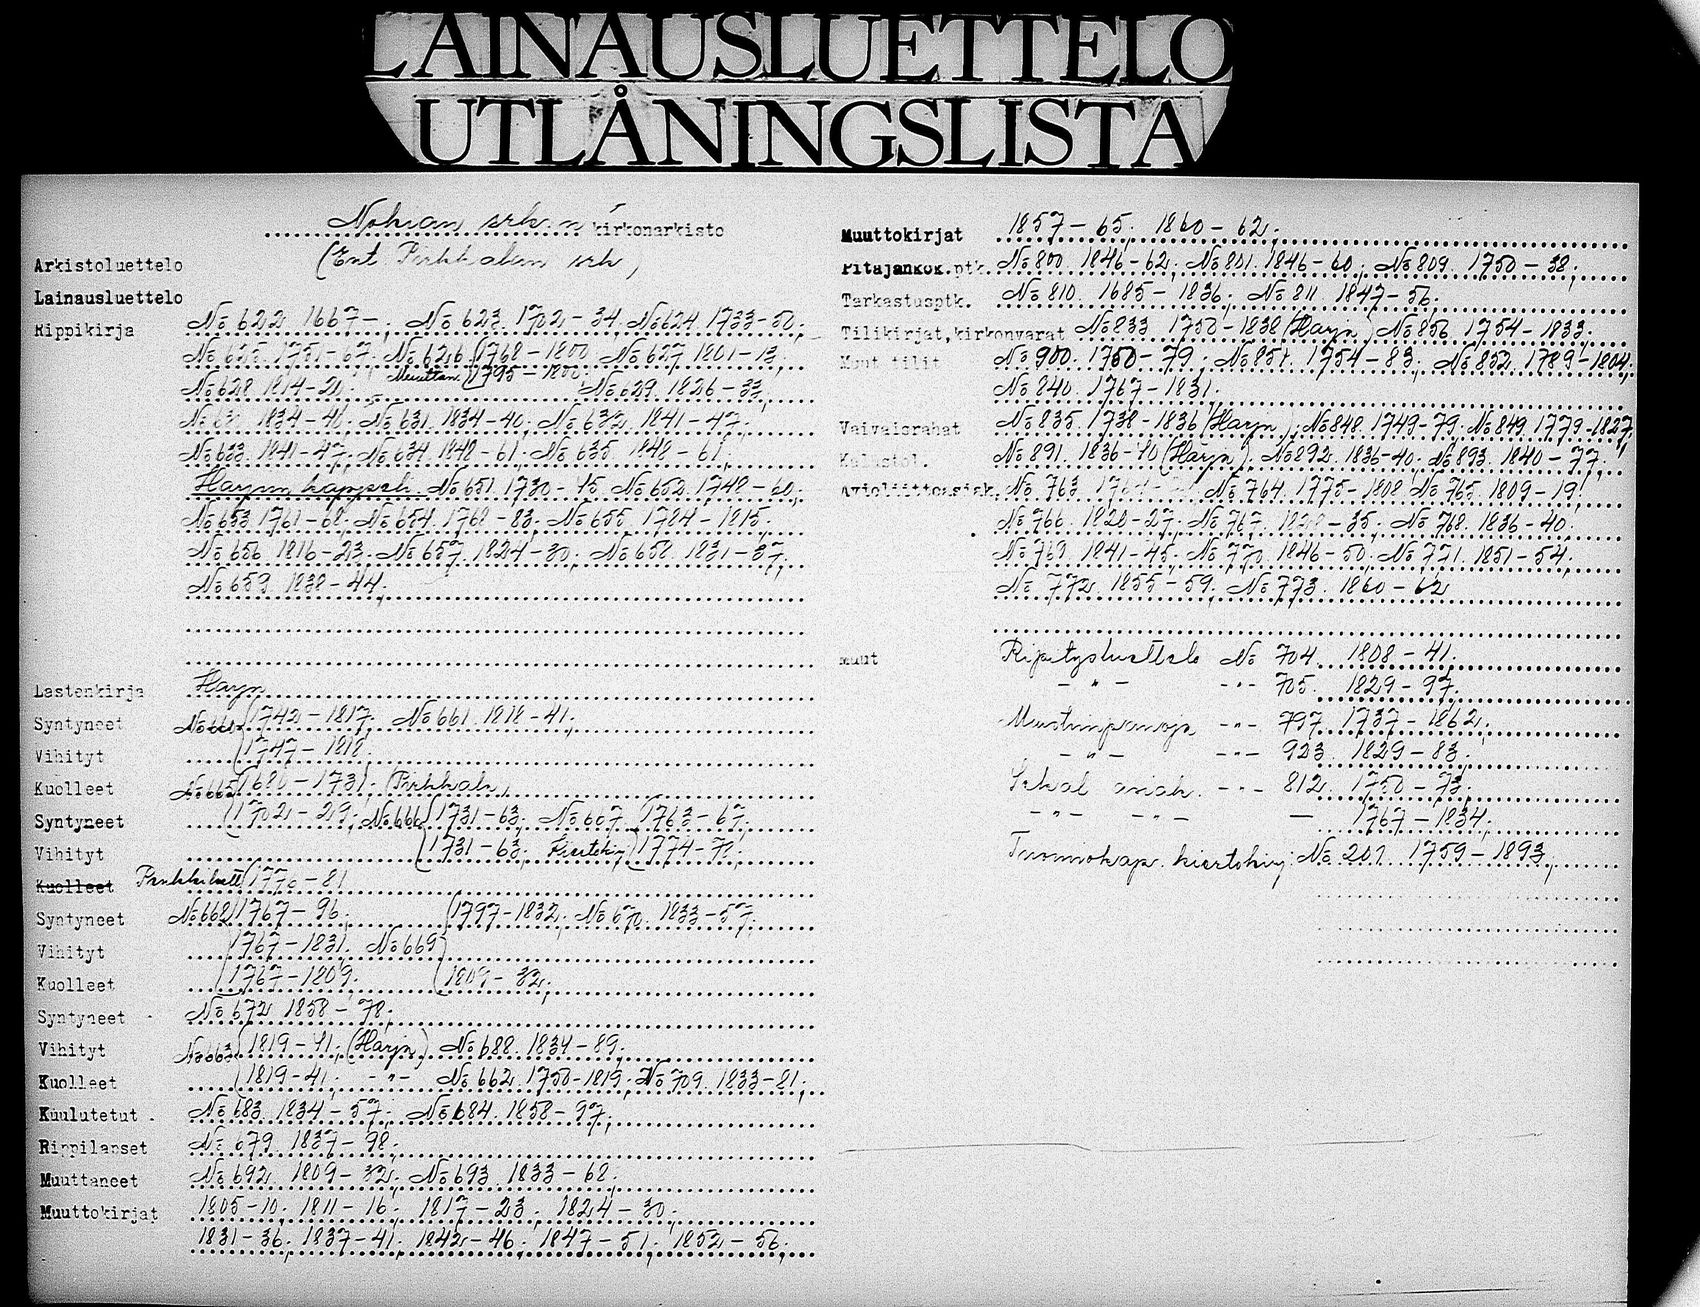 LAINAUSLUETTELO
UTLÅNINGSLISTA
Nokian srk:n kirkonarkisto
Arkistoluettelo (Ent. Pirkkalan srk)
Lainausluettelo
Rippikirja No 622 1667- ; No 623. 1702-34, No 624. 1733-50;
No 625. 1751-67; No 626 (1768-1800 No 627 1801-13;
Muuttan. (1795-1800
No 628 1814-21; No 629. 1826-33,
1834-40, No 631. 1834-40; No 632. 1841-47;
No 633. 1841-47, No 634. 1848-61; No 635 1848-61;
Harjun kappeli. No 651. 1730-45. No 652. 1748-60;
No 653. 1761-68; No 654. 1768-83; No 655. 1784-1815;
No 656 1816-23; No 657. 1824-30; No 658. 1831-37;
No 659 1838-44;
Lastenkirja Harju
Syntyneet (1742-1817; No 661. 1818-41;
Vihityt (1747-1818.
Kuolleet No 665 (1686-1731; (Pirkkala)
Syntyneet (1702-29; No 666 (1731-63; No 667 (1763-67;
Vihityt (1731-63; (1774-78;
Kuolleet (1770-81
Syntyneet No 668 (1767-96; (1797-1832; No 670. 1833-57.
Vihityt (1767-1831. No 669
Kuolleet (1767-1809. (1809-32;
Syntyneet No 672 1858-78;
Vihityt No 663 (1819-41; (Harju) No 688. 1834-89;
Kuolleet (1819-41; -"- No 662. 1750-1819; No 709. 1833-81;
Kuulutetut No 683. 1834-57; No 684. 1858-97;
Rippilapset No 679. 1837-98;
Muuttaneet No 692. 1809-32; No 693. 1833-68;
Muuttokirjat 1805-10; 1811-16; 1817-23; 1824-30;
1831-36; 1837-41; 1842-46; 1847-51; 1852-56;
Muuttokirjat 1857-65; 1860-62;
Pitäjänkok.ptk. No 800. 1846-62; No 801. 1846-60; No 809. 1750-38;
Tarkastusptk. No 810. 1685-1836; No 811. 1847-56;
Tilikirjat, kirkonvarat No 833. 1750-1838 (Harju) No 856 1754-1833;
Muut tilit No 900. 1750-79; No 851. 1754-83; No 852. 1789-1804;
No 840. 1767-1831;
Vaivaisrahat No 835. 1738-1836 (Harju); No 848. 1749-79; No 849. 1779-1827
No 891. 1836-40 (Harju); No 892. 1836-40; No 893. 1840-77;
Avioliittoasiak. No 763 No 764. 1775-1808 No 765. 1809-19;
No 766. 1820-27; No 767. -35; No 768. 1836-40;
No 769. 1841-45; No 770. 1846-50; No 771. 1851-54;
No 772. 1855-59; No 773. 1860-62
Muut Ripityslucttelo No 704. 1808-41.
-"- -"- 705. 1829-97.
Muistiinpanoja -"- 797. 1737-1862;
-"- -"- 923. 1829-83;
Sekal. asiak. -"- 812. 1750-73;
-"- -"- - 1767-1834;
Tuomiokap. kiertokirj. No 201. 1759-1893,